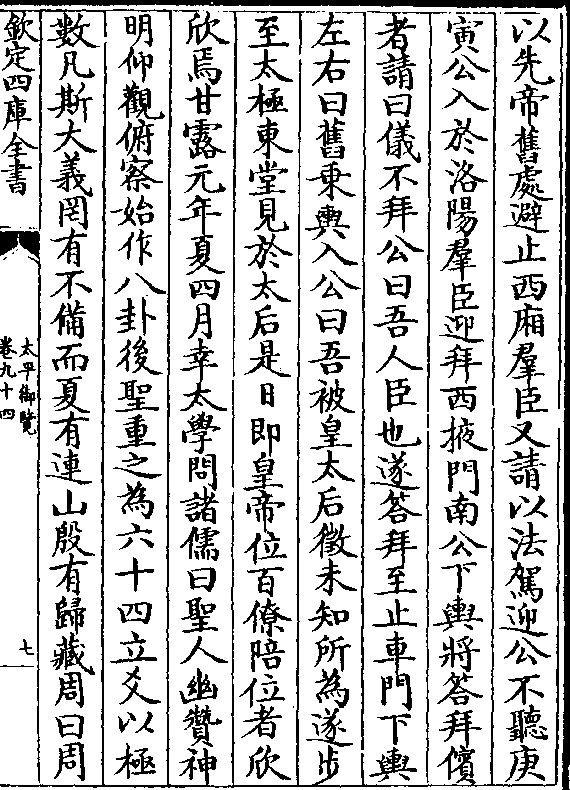 以先帝舊處避止西廂羣臣又請以法駕迎公不聽庚
寅公入於洛陽羣臣迎拜西掖門南公下輿將答拜儐
者請曰儀不拜公曰吾人臣也遂答拜至止車門下輿
左右曰舊乗輿入公曰吾被皇太后徵未知所為遂步
至太極東堂見於太后是日即皇帝位百僚陪位者欣
欣焉甘露元年夏四月幸太學問諸儒曰聖人幽贊神
明仰觀俯察始作八卦後聖重之為六十四立爻以極
數凡斯大義罔有不備而夏有連山殷有歸藏周曰周
欽定四庫全書
太平御覽
卷九十四
七